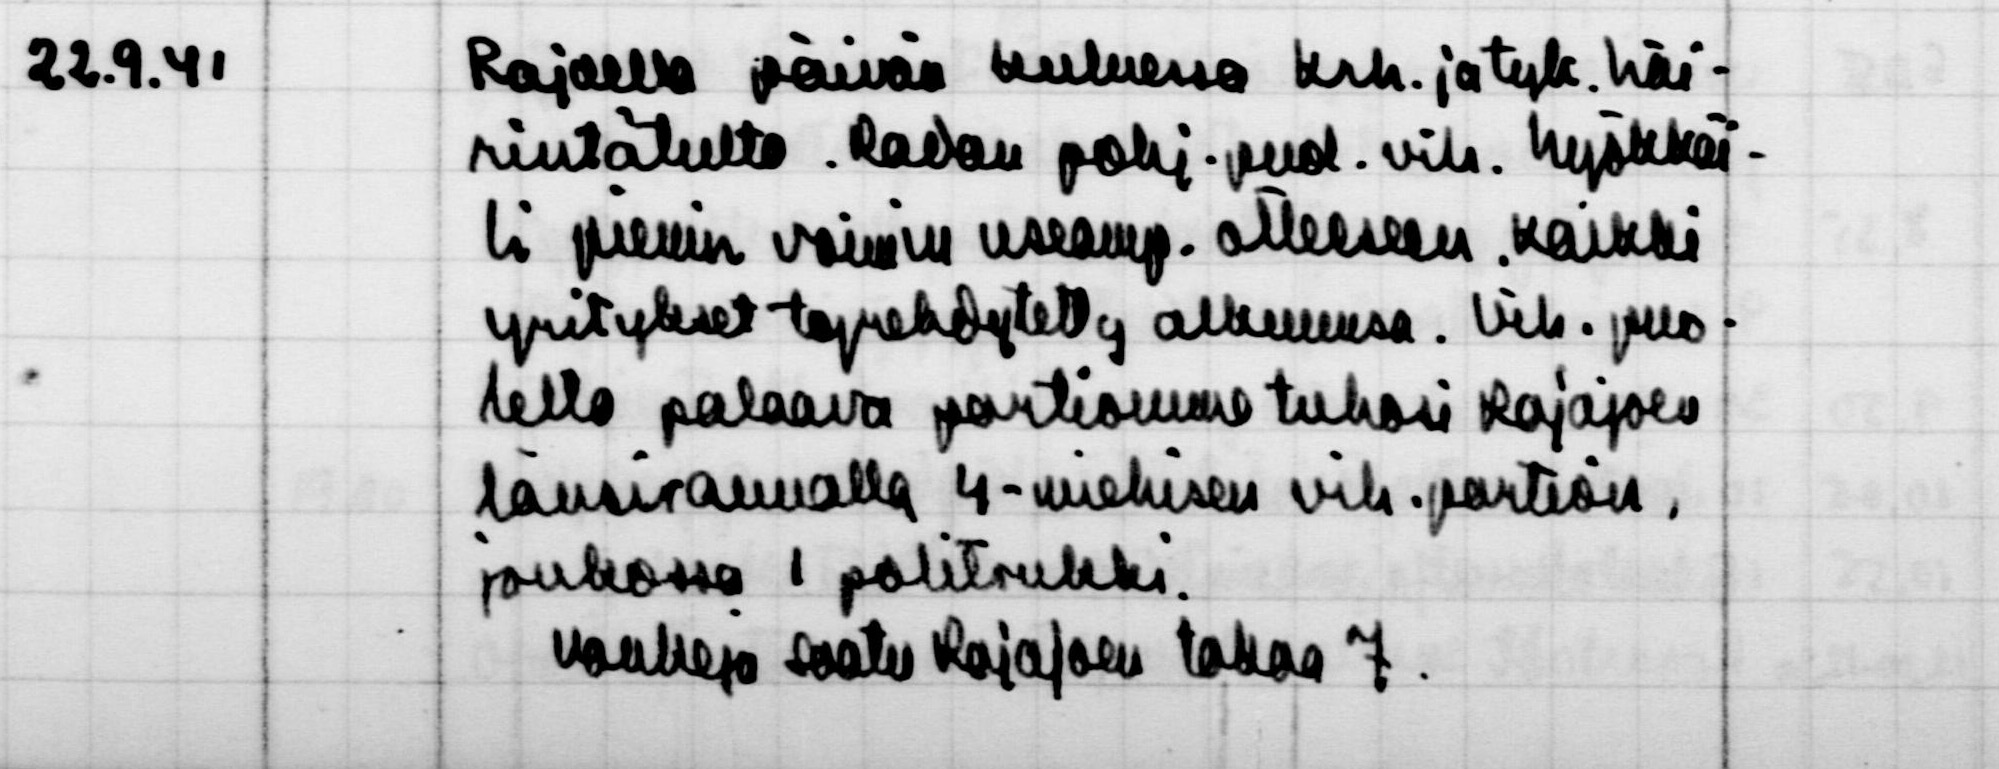 22.9.41 Rajalla päivän kuluessa krh. ja tyk. häi-
rintätulta. Radan pohj. puol. vih. hyökkäi-
li pienin voimin useamp. otteeseen. Kaikki
yritykset tyrehdytetty alkuunsa. Vih. puo-
lella palaava partiomme tuhosi Rajajoen
länsirannalla 4-miehisen vih. partion,
joukossa 1 politrukki.
Vankeja saatu Rajajoen takaa 7.